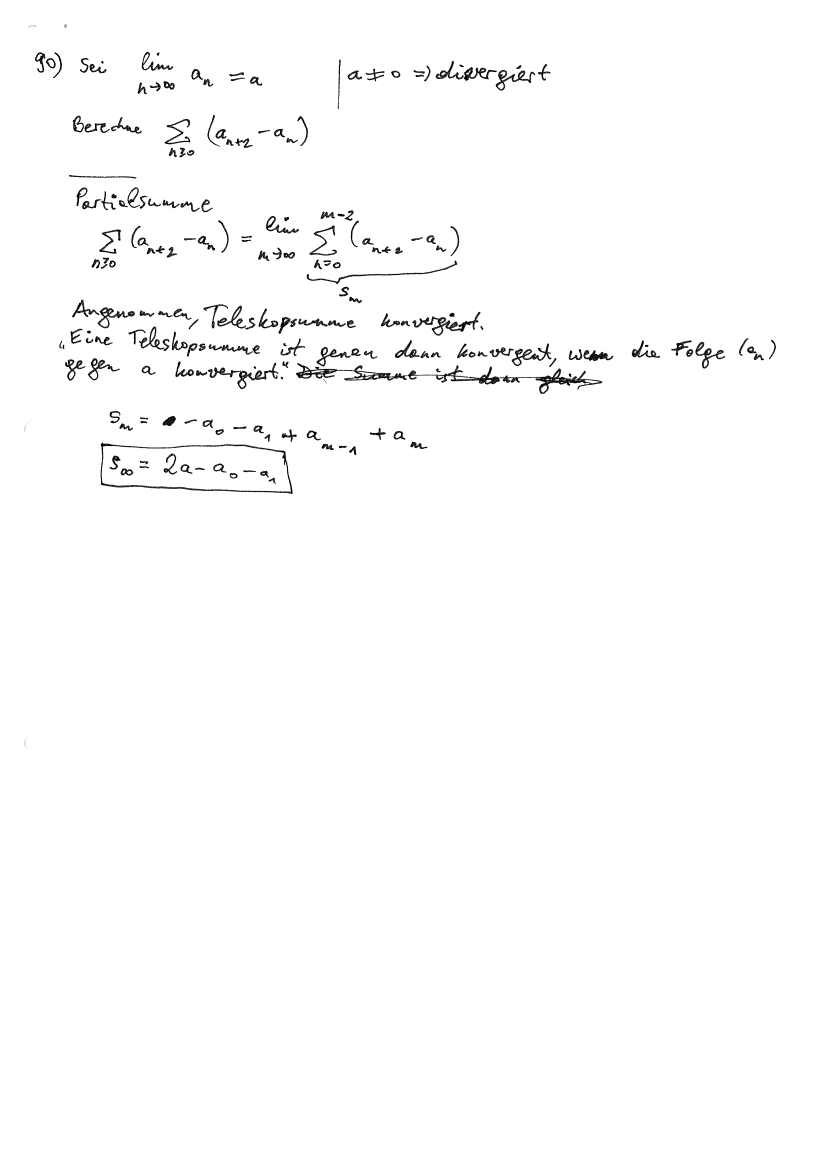 90) Sei lim n→∞ aₙ = a | a ≠ 0 ⇒ divergiert
Berechne ∑ n≥0 (aₙ₊₂ - aₙ)
Partialsumme
∑ n≥0 (aₙ₊₂ - aₙ) = lim m→∞ ∑ n=0 m-2 (aₙ₊₂ - aₙ)
Sₘ
Angenommen, Teleskopsumme konvergiert.
„Eine Teleskopsumme ist genau dann konvergent, wenn die Folge (aₙ)
gegen a konvergiert." Die Summe ist dann gleich
Sₘ = - a₀ - a₁ + aₘ₋₁ + aₘ
S∞ = 2a - a₀ - a₁